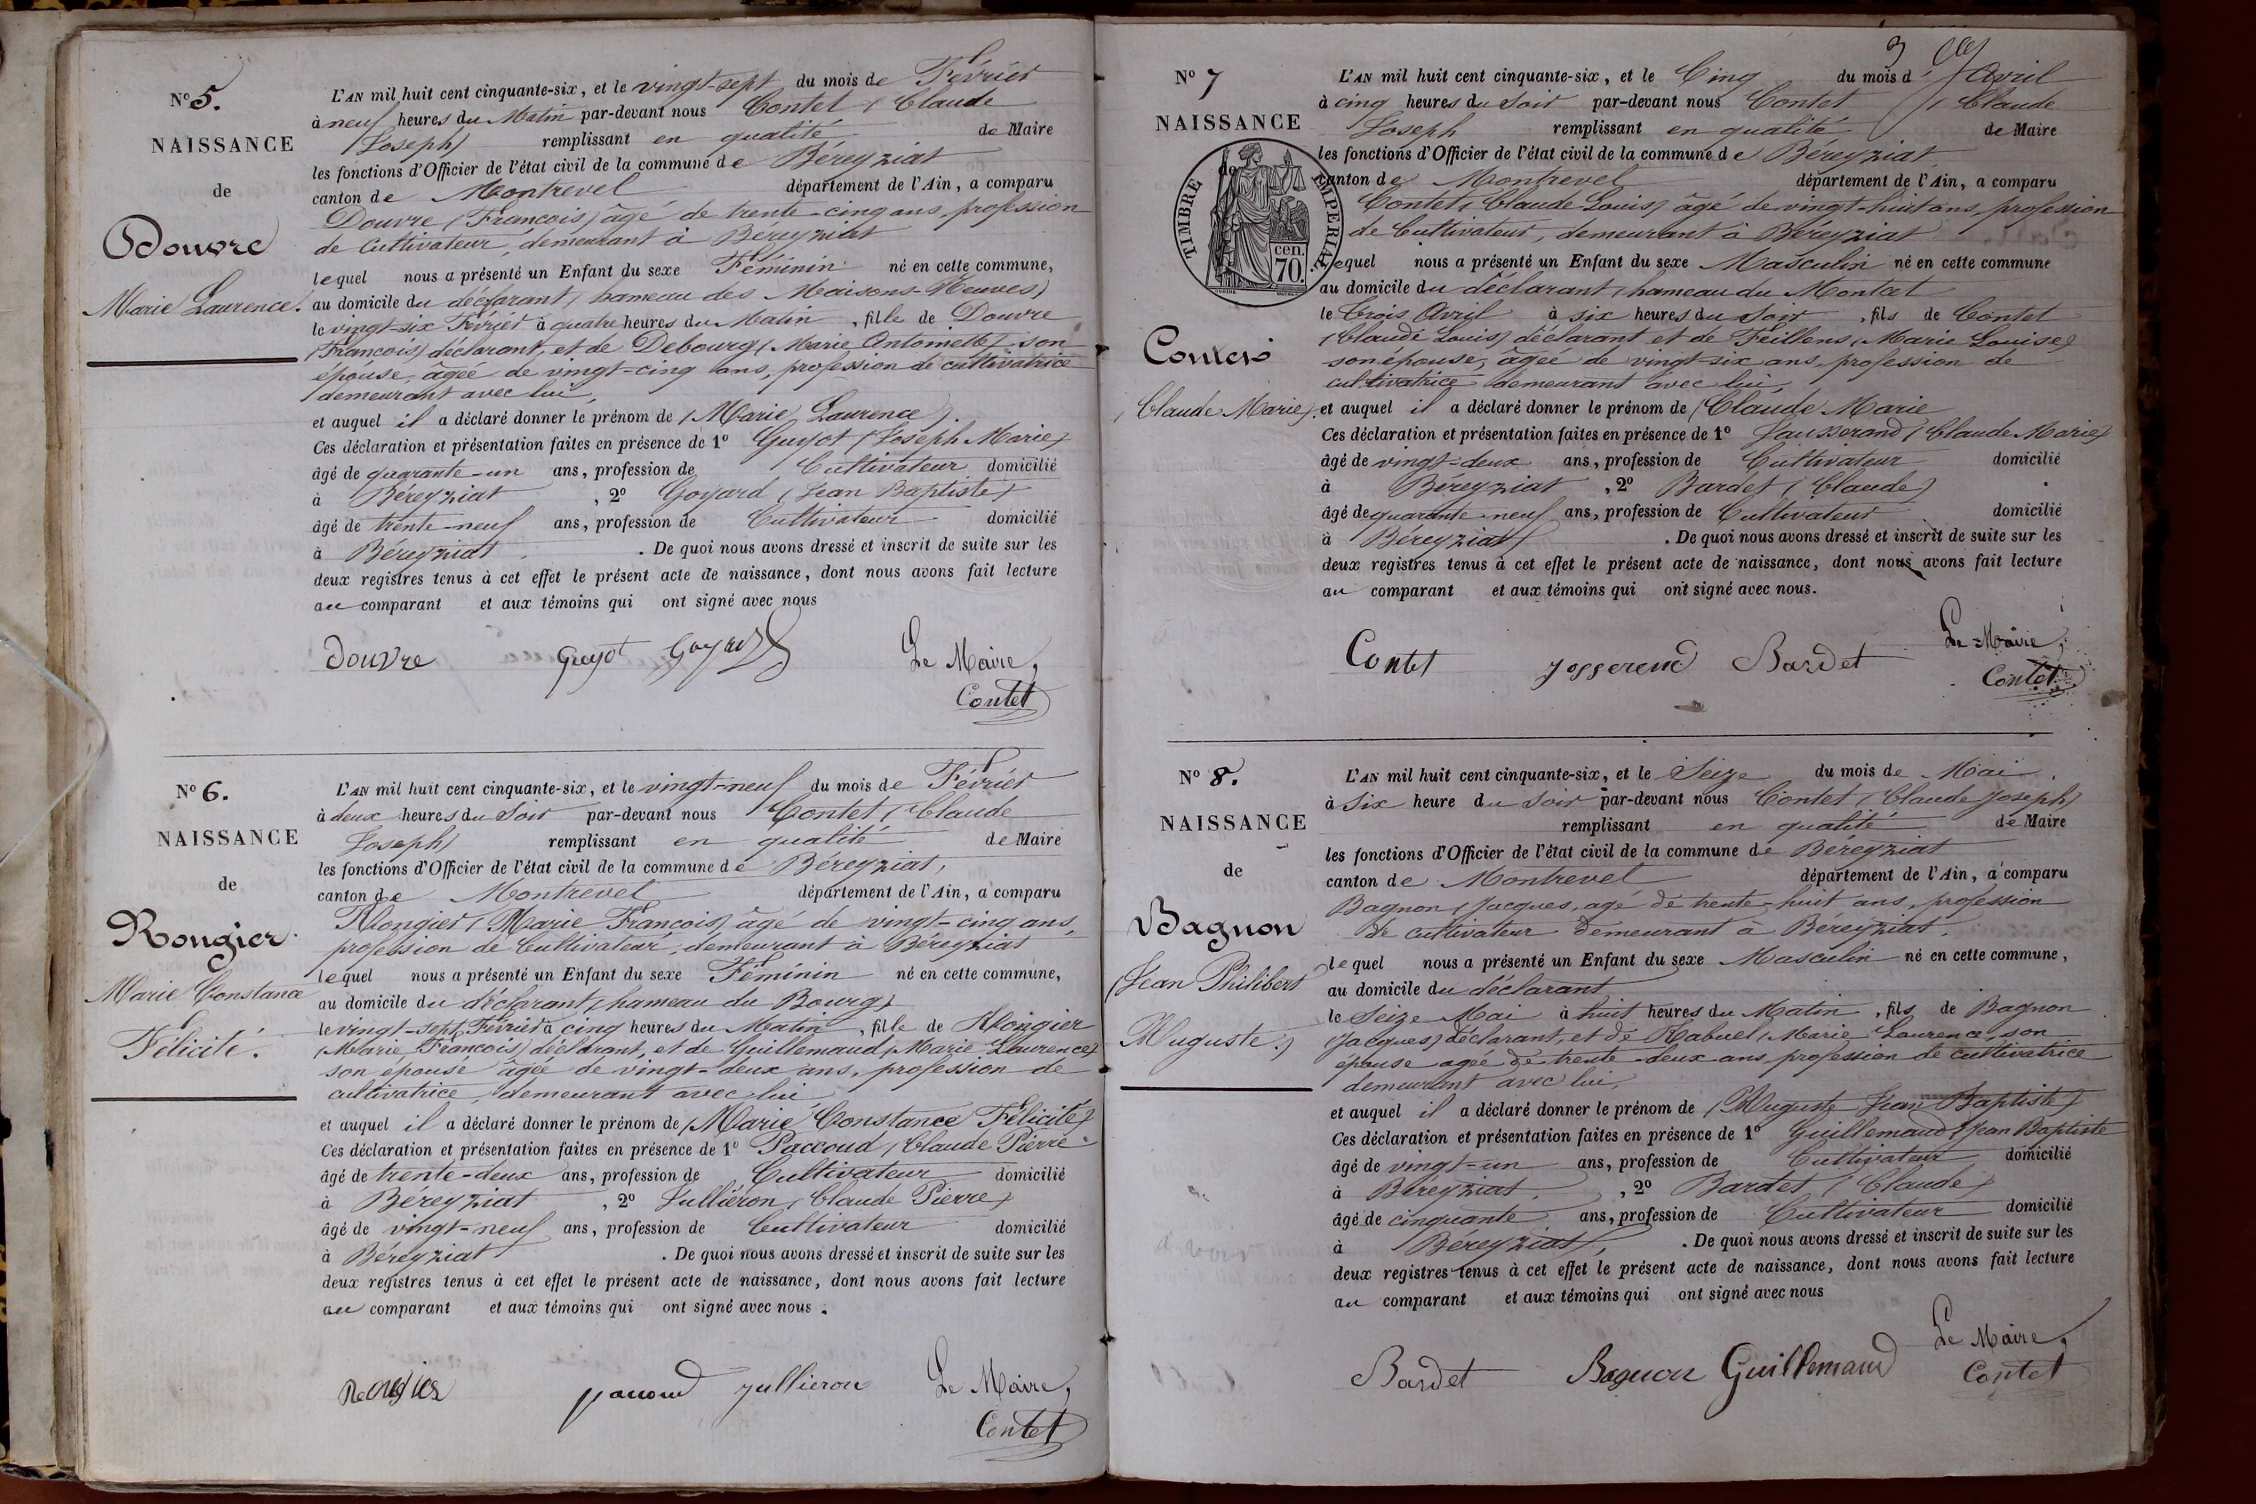 N° 5.
NAISSANCE
de
Douvre
Marie Laurence.
L'AN mil huit cent cinquante-six, et le vingt-sept du mois de Février
à neuf heures du Matin par-devant nous Contet (Claude
Joseph) remplissant en qualité de Maire
les fonctions d'Officier de l'état civil de la commune de Béreyziat
canton de Montrevel département de l'Ain, a comparu
Douvre (François) âgé de trente-cinq ans, profession
de Cultivateur, demeurant à Béreyziat
lequel nous a présenté un Enfant du sexe Féminin né en cette commune,
au domicile du déclarant (hameau des Maisons-Neuves)
le vingt-six Février à quatre heures du Matin, fille de Douvre
(François) déclarant, et de Debourg (Marie Antoinette) son
épouse, âgée de vingt-cinq ans, profession de cultivatrice
demeurant avec lui,
et auquel il a déclaré donner le prénom de (Marie Laurence).
Ces déclaration et présentation faites en présence de 1° Guyot (Joseph Marie)
âgé de quarante-un ans, profession de Cultivateur domicilié
à Béreyziat, 2° Goyard (Jean Baptiste)
âgé de trente-neuf ans, profession de Cultivateur domicilié
à Béreyziat. De quoi nous avons dressé et inscrit de suite sur les
deux registres tenus à cet effet le présent acte de naissance, dont nous avons fait lecture
au comparant et aux témoins qui ont signé avec nous
Douvre Guyot Goyard Le Maire,
Contet
N° 6.
NAISSANCE
de
Rongier
Marie Constance
Félicité.
L'AN mil huit cent cinquante-six, et le vingt-neuf du mois de Février
à deux heures du Soir par-devant nous Contet (Claude
Joseph) remplissant en qualité de Maire
les fonctions d'Officier de l'état civil de la commune de Béreyziat,
canton de Montrevel département de l'Ain, a comparu
Rongier (Marie François) âgé de vingt-cinq ans,
profession de Cultivateur, demeurant à Béreyziat
lequel nous a présenté un Enfant du sexe Féminin né en cette commune,
au domicile du déclarant (hameau du Bourg)
le vingt-sept Février à cinq heures du Matin, fille de Rongier
(Marie François) déclarant, et de Guillemaud (Marie Laurence)
son épouse âgée de vingt-deux ans, profession de
cultivatrice, demeurant avec lui
et auquel il a déclaré donner le prénom de (Marie Constance Félicité)
Ces déclaration et présentation faites en présence de 1° Paccoud (Claude Pierre
âgé de trente-deux ans, profession de Cultivateur domicilié
à Béreyziat, 2° Jullièron (Claude Pierre)
âgé de vingt-neuf ans, profession de Cultivateur domicilié
à Béreyziat. De quoi nous avons dressé et inscrit de suite sur les
deux registres tenus à cet effet le présent acte de naissance, dont nous avons fait lecture
au comparant et aux témoins qui ont signé avec nous.
paccoud jullieron Le Maire,
Contet
3
N° 7
NAISSANCE
de
TIMBRE IMPERIAL
70 cen.
Contet
(Claude Marie).
L'AN mil huit cent cinquante-six, et le Cinq du mois d'Avril
à cinq heures du Soir par-devant nous Contet (Claude
Joseph remplissant en qualité de Maire
les fonctions d'Officier de l'état civil de la commune de Béreyziat
canton de Montrevel département de l'Ain, a comparu
Contet (Claude Louis) âgé de vingt-huit ans, profession
de Cultivateur, demeurant à Béreyziat
lequel nous a présenté un Enfant du sexe Masculin né en cette commune
au domicile du déclarant (hameau du Montat
le Trois Avril à six heures du Soir, fils de Contet
(Claude Louis) déclarant et de Feillens (Marie Louise)
son épouse, âgée de vingt-six ans, profession de
cultivatrice demeurant avec lui,
et auquel il a déclaré donner le prénom de (Claude Marie
Ces déclaration et présentation faites en présence de 1° Jausserand (Claude Marie)
âgé de vingt-deux ans, profession de Cultivateur domicilié
à Béreyziat, 2° Bardet (Claude)
âgé de quarante-neuf ans, profession de Cultivateur domicilié
à Béreyziat. De quoi nous avons dressé et inscrit de suite sur les
deux registres tenus à cet effet le présent acte de naissance, dont nous avons fait lecture
au comparant et aux témoins qui ont signé avec nous.
Contet josserend Bardet Le Maire,
Contet
N° 8.
NAISSANCE
de
Bagnon
(Jean Philibert
Auguste.)
L'AN mil huit cent cinquante-six, et le Seize du mois de Mai
à six heure du soir par-devant nous Contet (Claude Joseph)
remplissant en qualité de Maire
les fonctions d'Officier de l'état civil de la commune de Béreyziat
canton de Montrevel département de l'Ain, a comparu
Bagnon (Jacques, agé de trente-huit ans, profession
de cultivateur demeurant à Béreyziat.
lequel nous a présenté un Enfant du sexe Masculin né en cette commune,
au domicile du déclarant
le Seize Mai à huit heures du Matin, fils de Bagnon
(Jacques) déclarant, et de Rabuel (Marie Laurence, son
épouse agée de trente-deux ans, profession de cultivatrice
demeurant avec lui,
et auquel il a déclaré donner le prénom de (Auguste Jean Baptiste)
Ces déclaration et présentation faites en présence de 1° Guillemaud (Jean Baptiste
âgé de vingt-un ans, profession de Cultivateur domicilié
à Béreyziat, 2° Bardet (Claude)
âgé de cinquante ans, profession de Cultivateur domicilié
à Béreyziat. De quoi nous avons dressé et inscrit de suite sur les
deux registres tenus à cet effet le présent acte de naissance, dont nous avons fait lecture
au comparant et aux témoins qui ont signé avec nous
Bardet Bagnon Guillemaud Le Maire,
Contet